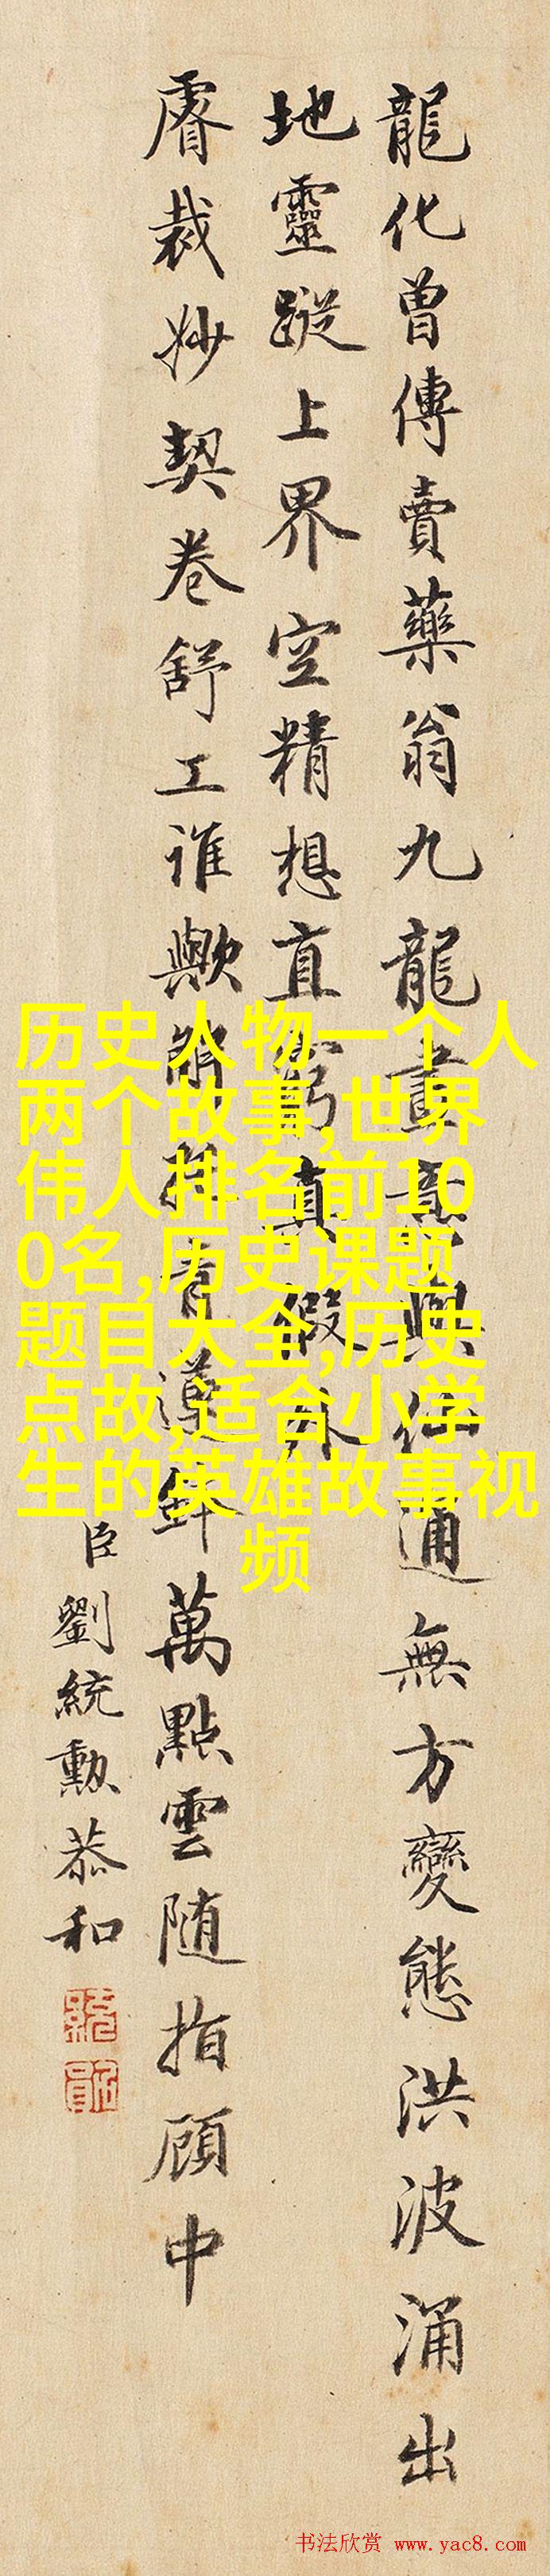 龍化曾傳賣藥翁九龍畫意與仙通無方變態洪波涌出
地靈蹤上界空精想直窮真假外
睿裁妙契卷舒工誰歟解青蓮鉢萬點雲随指顧中
臣劉統勳恭和
历史人物一个人
两个故事,世界
伟人排名前10
0名,历史课题
题目大全,历史
点故,适合小学
生的英雄故事视
频
书法欣赏 www.yac8.com